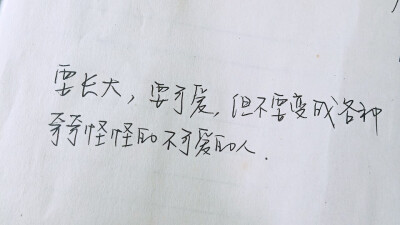 要长大，要可爱，但不要变成各种
奇奇怪怪的不可爱的人．